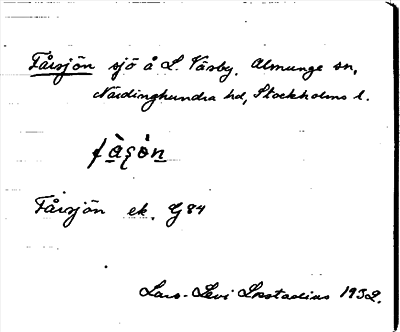 Fårsjön sjö å L. Väsby. Almunge sn,
Närdinghundra hd, Stockholms l.
Fårsjön ek. G84
Lars-Levi Læstadius 1932.